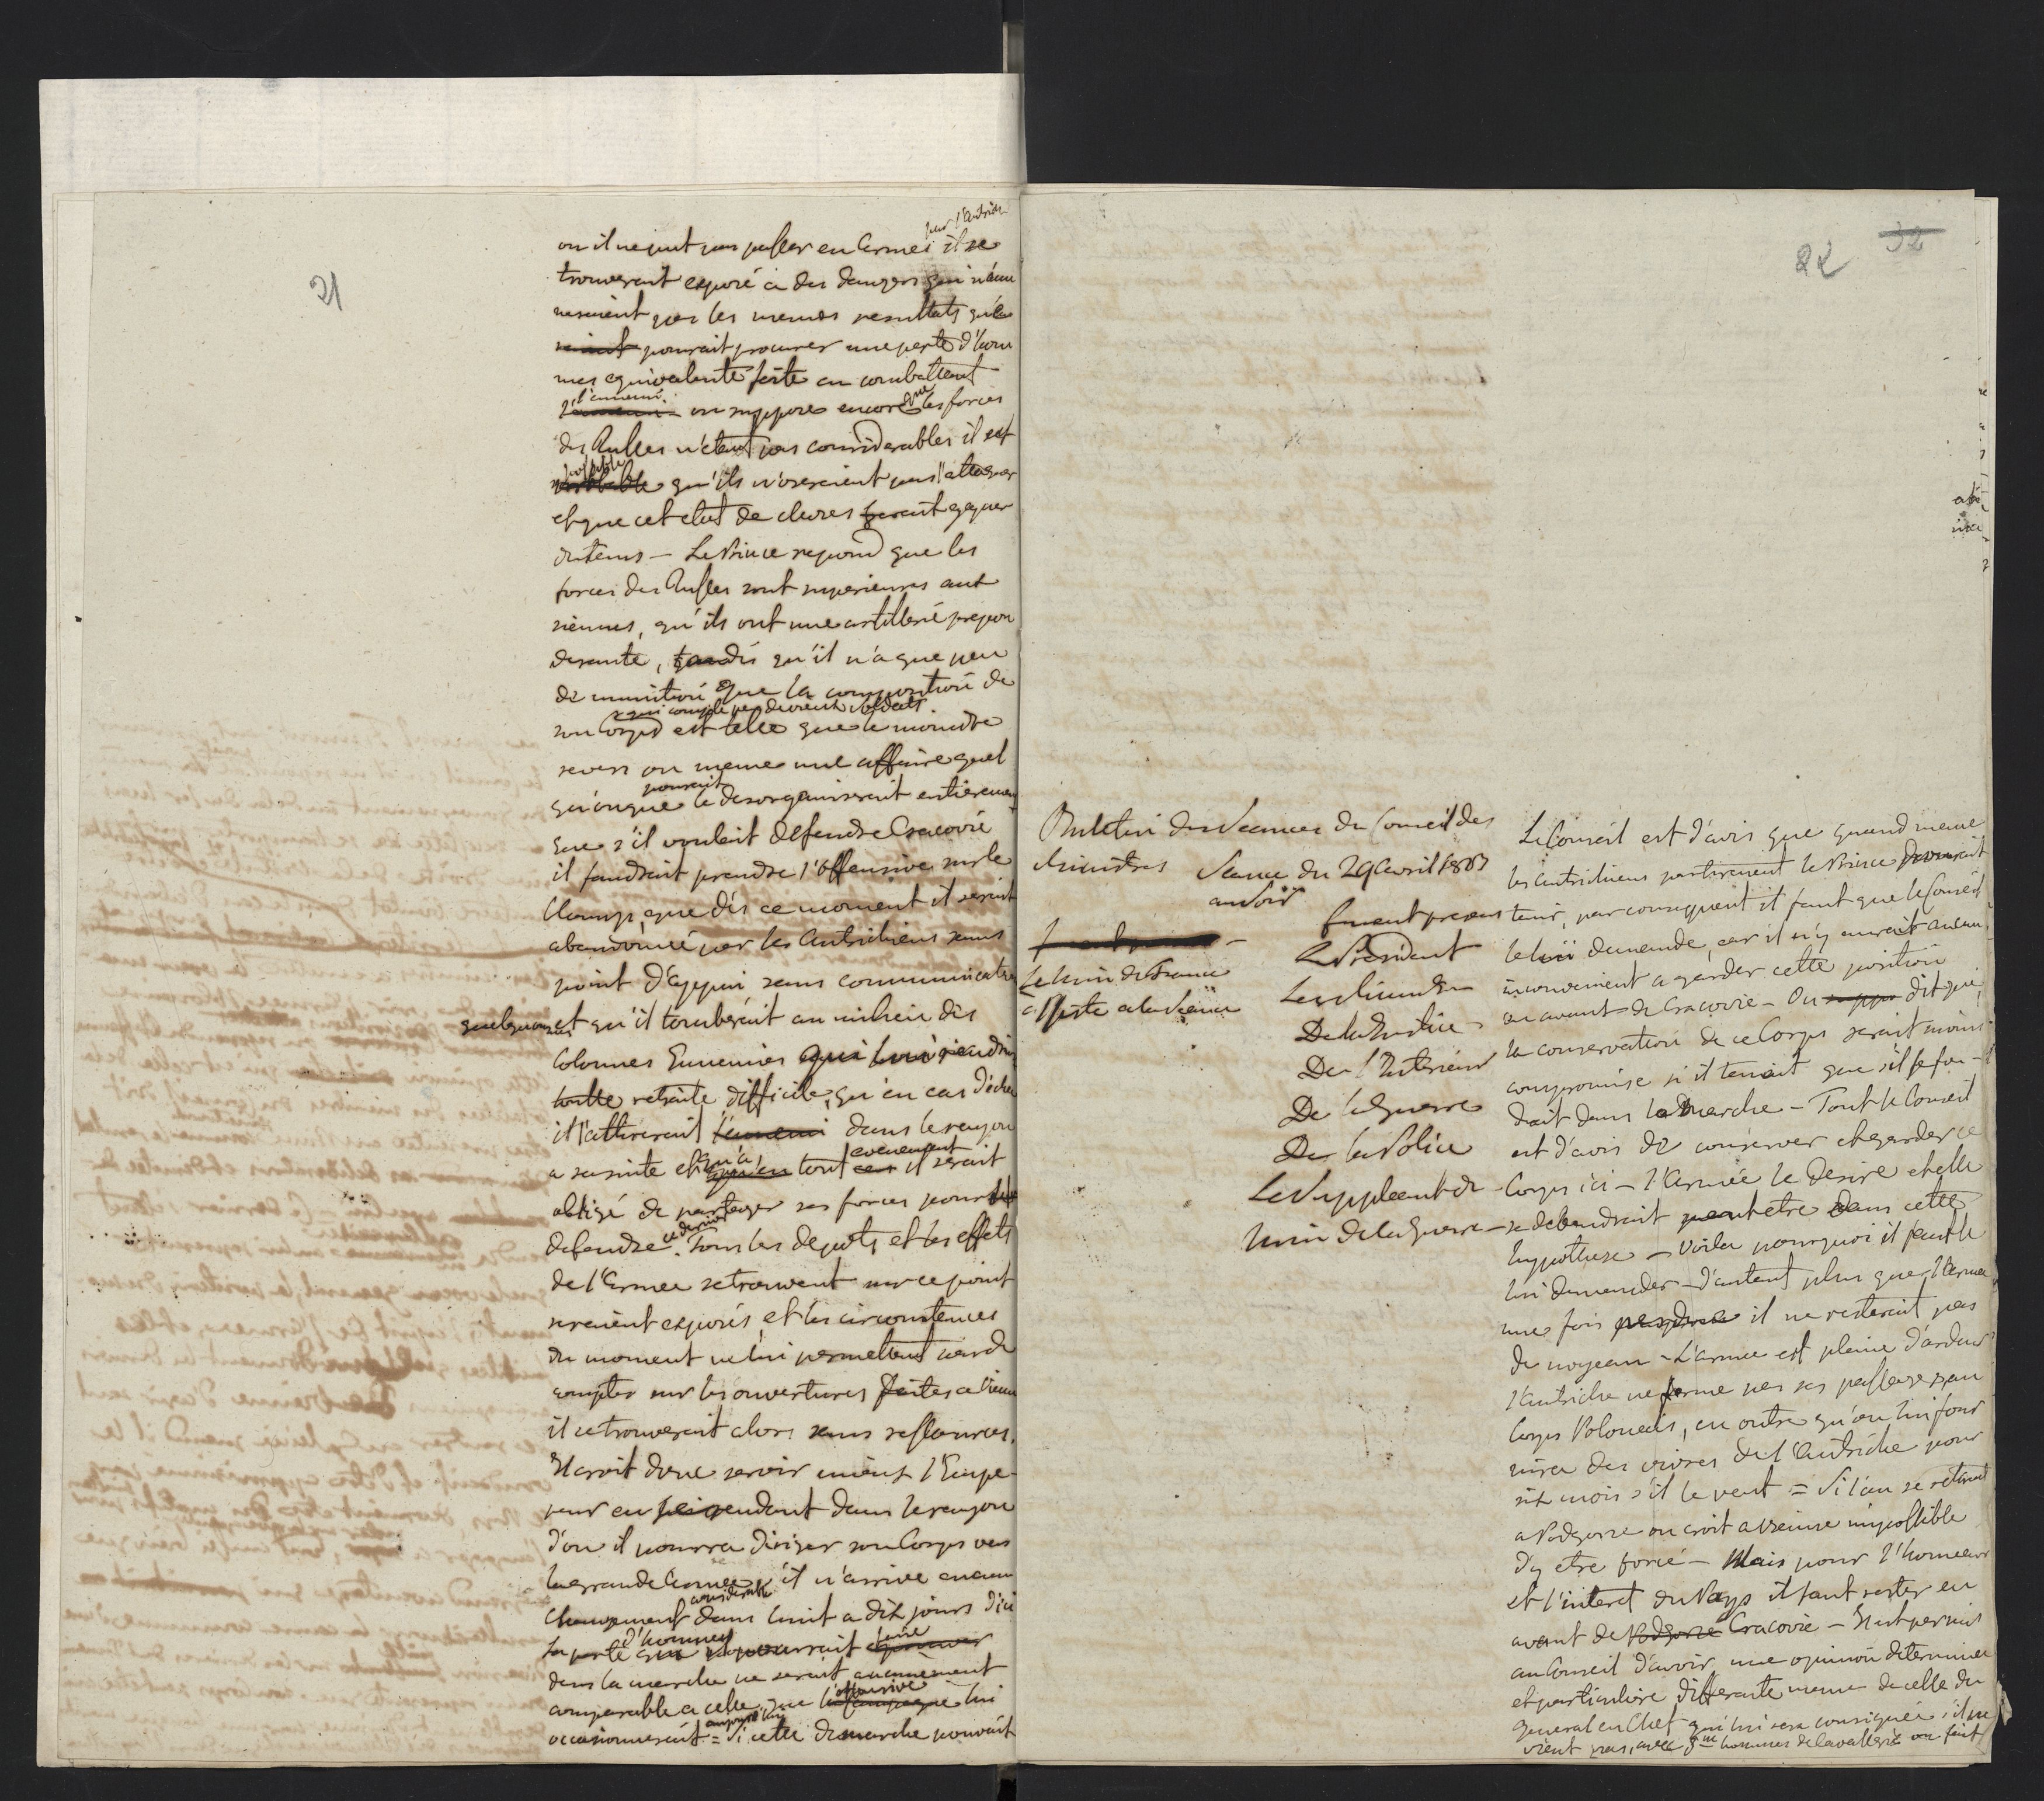 21
par l'Autriche
ou il ne peut pas passer en Armes il se
trouverait exposé a des dangers qui n'ame
neraient pas les memes resultats que
pourrait procurer une perte d'hom
mes equivalente faite en combattant
l'ennemi.
on suppose encore que les forces
des Russes n'etant pas considerables il est
possible
qu'ils n'oseraient pas l'attaquer
et que cet etat de choses ferait gagner
du tems — Le Prince repond que les
forces des Russes sont superieures aux
siennes, qu'ils ont une artillerie prepon
derante, tandis qu'il n'a que peu
de munition que la composition de
qui compte peu de vieux soldats
son Corps est telle que le moindre
revers ou meme une affaire quel
pourrait
qu'onque le desorganiserait entierement
que s'il voulait defendre Cracovie
il faudrait prendre l'offensive sur le
Champ, que dès ce moment il serait
abandonné par les Autrichiens sans
point d'appui sans communication
et qu'il tomberait au milieu des
Colonnes Ennemies qui lui rendrai
toutte retraite difficile, qu'en cas d'echec
il l'attirerait l'ennemi dans le rayon
evenement
a sa suite et qu'a tout cas il serait
obligé de partager ses forces pour
ce dernier
defendre. Tous les depots et les effets
de l'Armee se trouvent sur ce point
seraient exposés et les circonstances
du moment ne lui permettent pas de
compter sur les ouvertures faites a
il se trouverait alors sans ressources.
Il croit donc servir mieux l'Empe-
reur en se rendant dans le rayon
d'ou il pourra diriger son Corps vers
la grande Armee s'il n'arrive aucun
considerable
Changement dans huit a dix jours d'ici
d'hommes faire
La perte que pourrait eprouver
dans la marche ne serait aucunement
offensive
comparable a celle que la campagne lui
aujourd'hui
occasionnerait = Si cette demarche pouvait
22 32
Bulletin des Seances du Conseil des
Ministres Seance du 29 Avril 1813
au soir
furent presens
Le Min de France
assiste a la Seance
Le President
Les Ministres
De la Justice
De l'Interieur
De la Guerre
De la Police
Le Suppleant du
Min de la Guerre
Le Conseil est d'avis que quand meme
les Autrichiens partiraient le Prince devrait
tenir, par consequent il faut que le Conseil
le lui demande, car il n'y aurait aucun
inconvenient a garder cette position
en avant de Cracovie — On dit que
la conservation de ce Corps serait moins
compromise si il tenait que s'il se fon-
drait dans la marche — Tout le Conseil
est d'avis de conserver et garder ce
Corps ici — l'Armée le desire et elle
se debanderait peut etre dans cette
hypothese — Voila pourquoi il faut le
lui demander — d'autant plus que l'Armee
une fois perdue il ne resterait pas
de noyeau — L'armee est pleine d'ardeur
l'Autriche ne ferme pas ses passages au
Corps Polonais, en outre qu'on lui four
nira des vivres de l'Autriche pour
six mois s'il le veut = Si l'on se retirait
a Podgorze on croit a Vienne impossible
d'y etre forcé — Mais pour l'honneur
et l'interet du Pays il faut rester en
avant de Podgorze Cracovie — Il est permis
au Conseil d'avoir une opinion determinee
et particuliere differente meme de celle du
General en Chef qui lui sera consignée s'il ne
vient pas, avec hommes de Cavallerie on fait